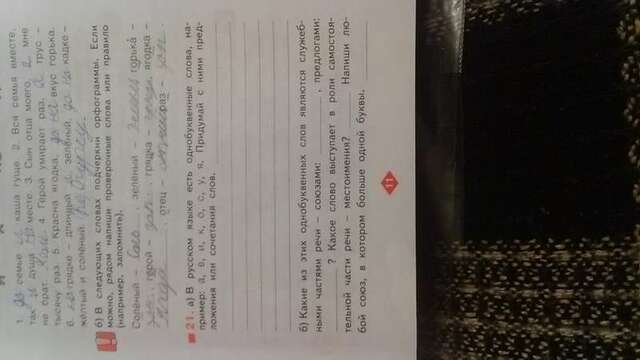 1. В семье и каша гуще. 2. Вся семья вместе,
так и душа на месте. 3. Сын отца моего, а мне
не брат. 4. Герой умирает раз, а трус –
тысячу раз. 5. Красна ягодка, да на вкус горька.
6. На грядке – длинный и зелёный, а в кадке –
жёлтый и солёный.
б) В следующих словах подчеркни орфограммы. Если
можно, рядом напиши проверочные слова или правило
(например, запомнить).
Солёный – , зелёный – , горька –
, герой – , грядка – , ягодка –
, отец – , раз –
21. а) В русском языке есть однобуквенные слова, на-
пример: а, в, и, к, о, с, у, я. Придумай с ними пред-
ложения или сочетания слов.
б) Какие из этих однобуквенных слов являются служеб-
ными частями речи – союзами: , предлогами:
? Какое слово выступает в роли самостоя-
тельной части речи – местоимения? Напиши лю-
бой союз, в котором больше одной буквы.
11